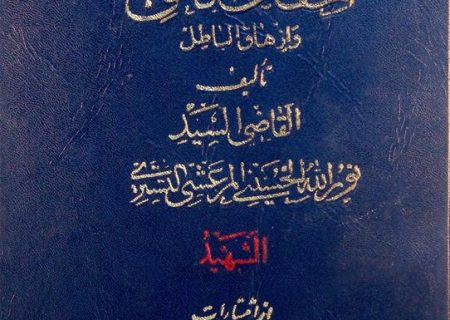 وازهاق الباطل
تأليف
القاضي السيد
نور الله الحسيني المرعشي التستري
الشهيد